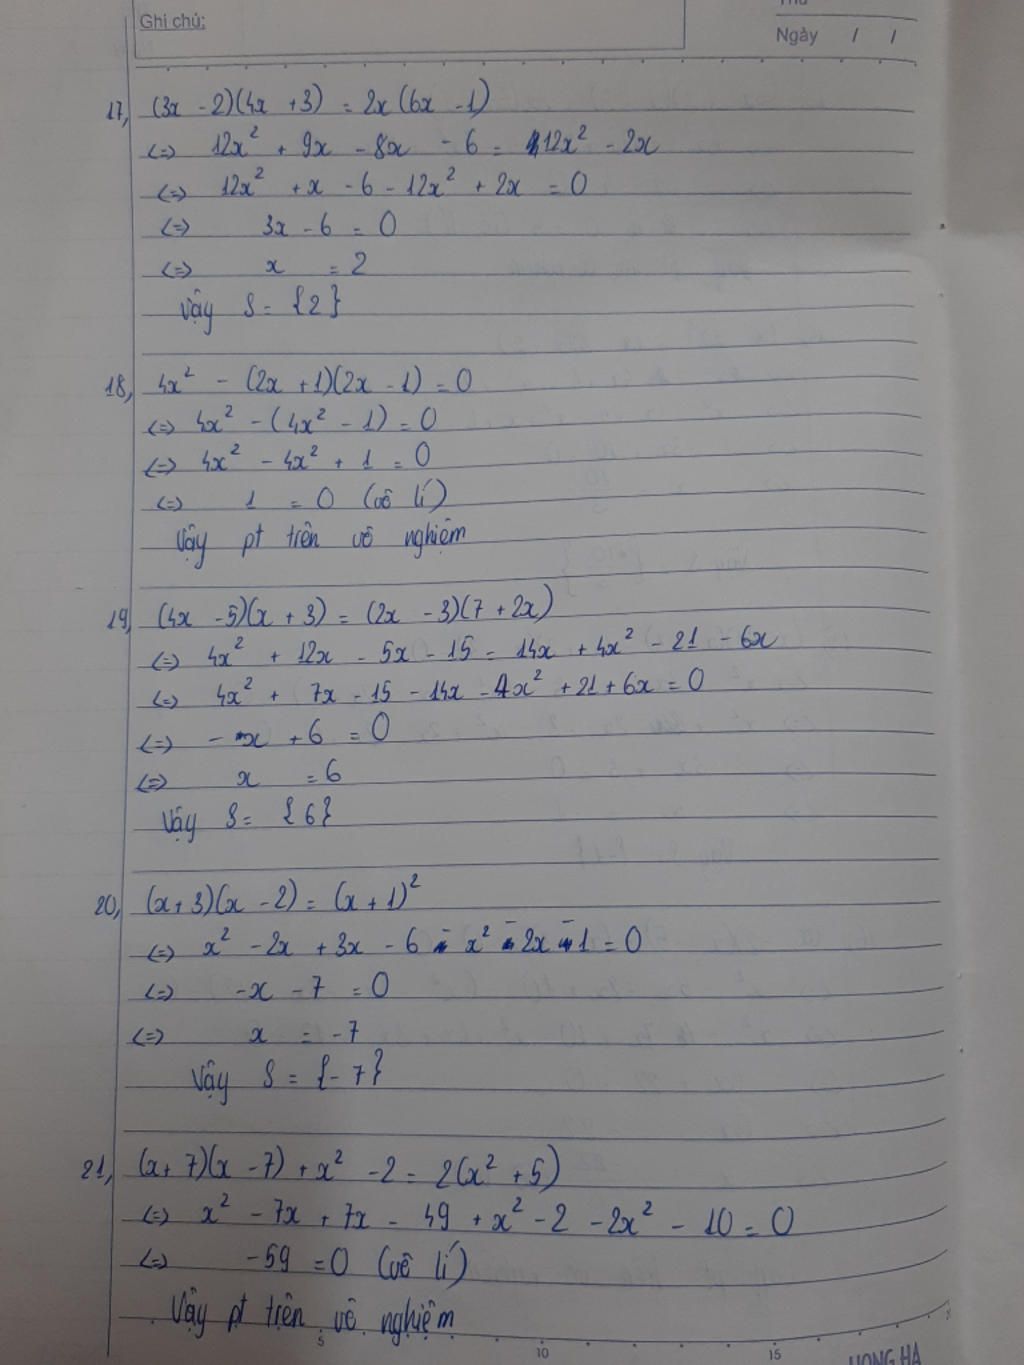 Ghi chú:
Thứ
Ngày / /
17, (3x - 2)(4x + 3) = 2x(6x - 1)
<=> 12x² + 9x - 8x - 6 = 12x² - 2x
<=> 12x² + x - 6 - 12x² + 2x = 0
<=> 3x - 6 = 0
<=> x = 2
Vậy S = {2}
18, 4x² - (2x + 1)(2x - 1) = 0
<=> 4x² - (4x² - 1) = 0
<=> 4x² - 4x² + 1 = 0
<=> 1 = 0 (vô lí)
Vậy pt trên vô nghiệm
19, (4x - 5)(x + 3) = (2x - 3)(7 + 2x)
<=> 4x² + 12x - 5x - 15 = 14x + 4x² - 21 - 6x
<=> 4x² + 7x - 15 - 14x - 4x² + 21 + 6x = 0
<=> - x + 6 = 0
<=> x = 6
Vậy S = {6}
20, (x + 3)(x - 2) = (x + 1)²
<=> x² - 2x + 3x - 6 - x² - 2x - 1 = 0
<=> -x - 7 = 0
<=> x = -7
Vậy S = {-7}
21, (x + 7)(x - 7) + x² - 2 = 2(x² + 5)
<=> x² - 7x + 7x - 49 + x² - 2 - 2x² - 10 = 0
<=> -59 = 0 (vô lí)
Vậy pt trên vô nghiệm
5 10 15
HONG HA